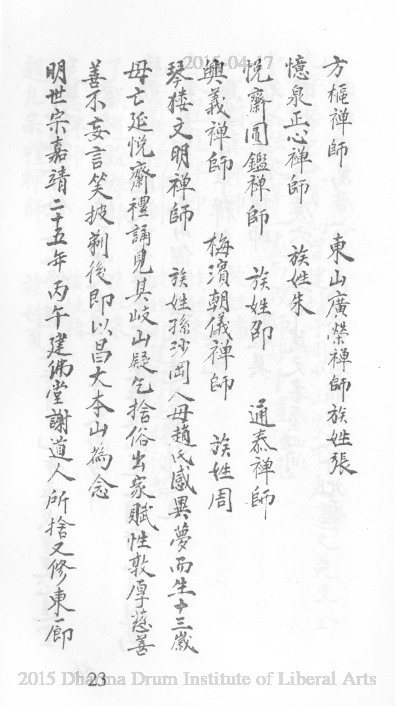 方樞禪師　東山廣榮禪師族姓張
憶泉正心禪師　族姓朱
悅齋圓鑑禪師　族姓邵　通泰禪師
輿義禪師　梅濱朝儀禪師　族姓周
琴樓文明禪師　族姓孫沙岡人母趙氏感異夢而生十三歲
母亡延悅齋禮誦見其岐山疑乞捨俗出家賦性敦厚慈善
善不妄言笑披剃後即以昌大本山為念
明世宗嘉靖二十五年丙午建佛堂謝道人所捨又修東廊
2015-04-17
23
2015 Dharma Drum Institute of Liberal Arts